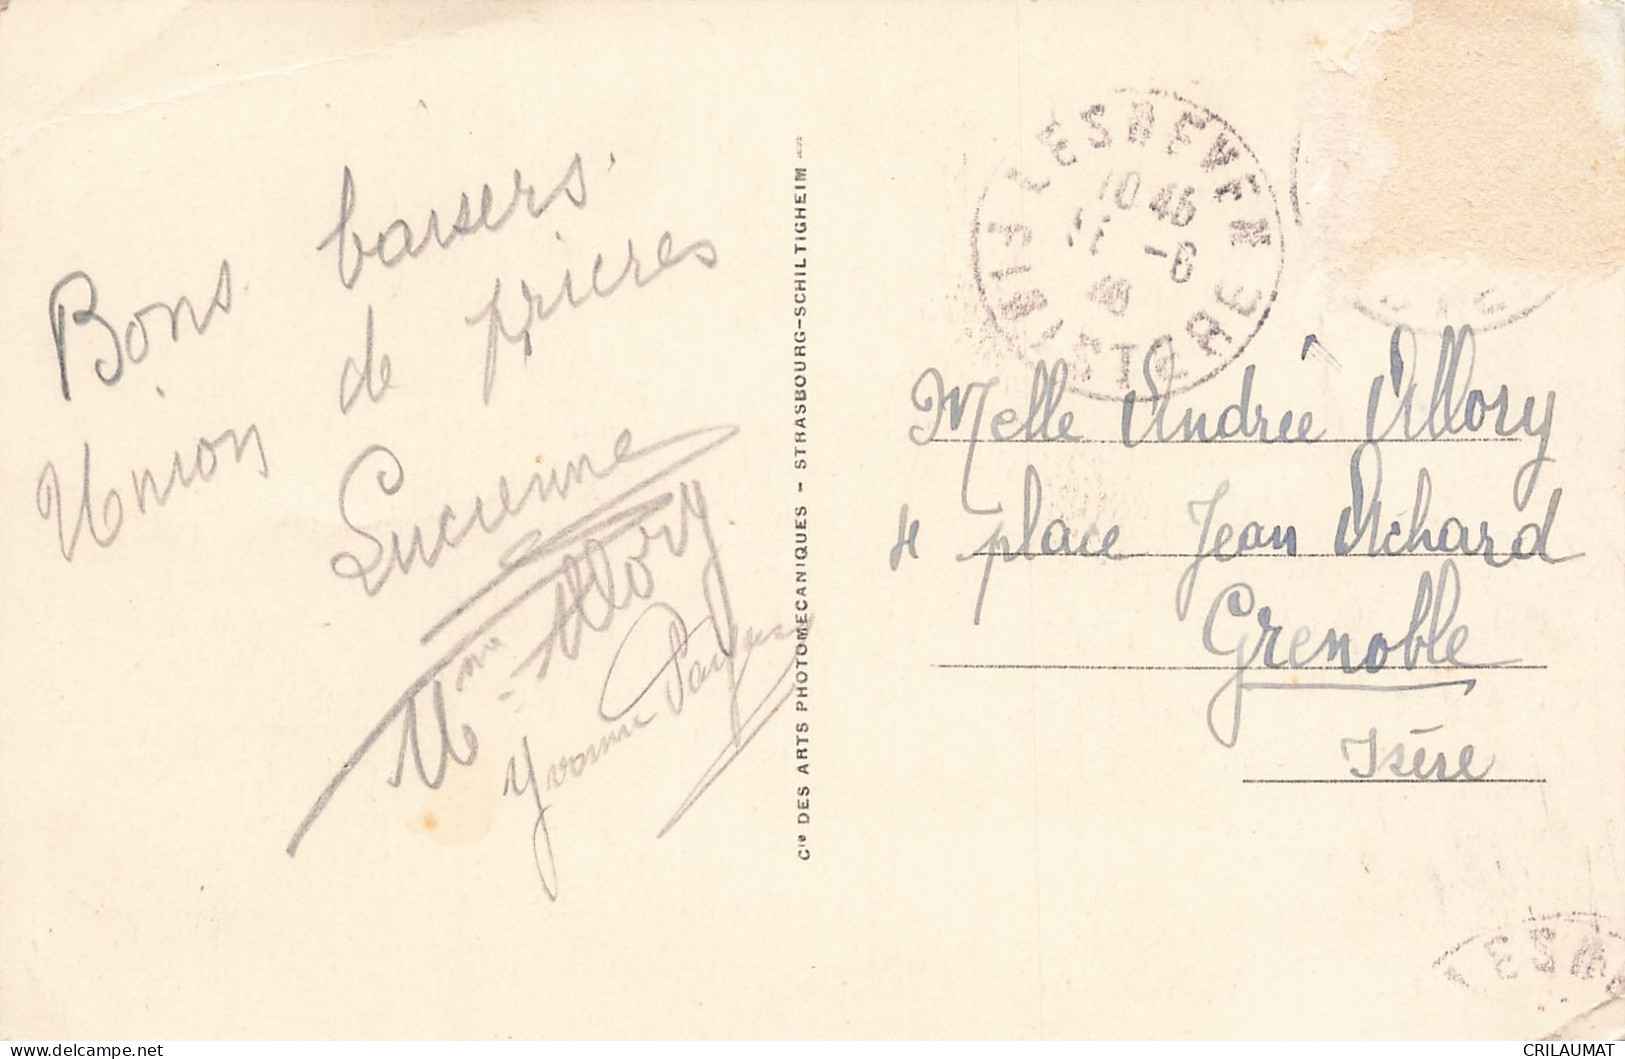 Bons baisers.
Union de prieres
Lucienne
Mme Allory
Yvonne
Cie DES ARTS PHOTOMECANIQUES - STRASBOURG-SCHILTIGHEIM
LESNEVEN
10 45
11 -6
46
FINISTERE
Melle Andrée Allory
4 place Jean Achard
Grenoble
Isère
LESN
CRILAUMAT